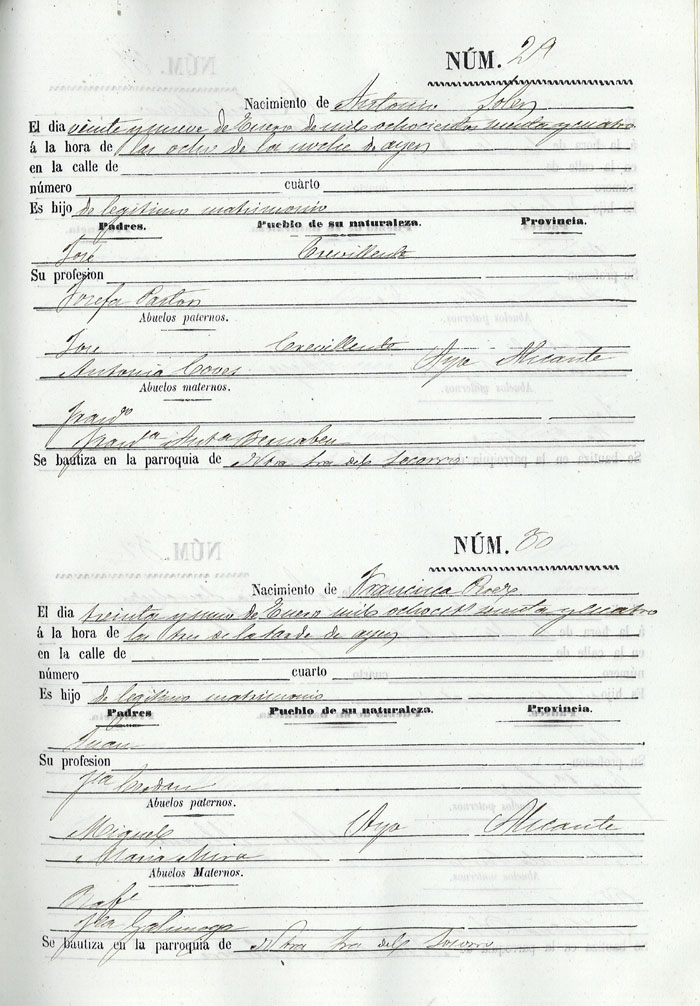 NÚM. 29
Nacimiento de Antonio Soler
El dia veinte y nueve de Enero de mil ochocientos setenta y cuatro
á la hora de las ocho de la noche de ayer
en la calle de
número cuarto
Es hijo de legitimo matrimonio
Padres. Pueblo de su naturaleza. Provincia.
José Crevillente
Su profesion
Josefa Pastor
Abuelos paternos.
Jose Crevillente
Antonia Coves Aspe Alicante
Abuelos maternos.
Franco
Franca Bernabeu
Se bautiza en la parroquia de Ntra Sra del Socorro
NÚM. 30
Nacimiento de Francisca
El dia treinta y uno de Enero mil ochocts setenta y cuatro
á la hora de las tres de la tarde de ayer
en la calle de
número cuarto
Es hijo de legitimo matrimonio
Padres Pueblo de su naturaleza. Provincia.
Juan
Su profesion
Fca
Abuelos paternos.
Miguel Aspe Alicante
Maria Mira
Abuelos Maternos.
Rafl
Fca Galinsoga
Se bautiza en la parroquia de Ntra Sra del Socorro